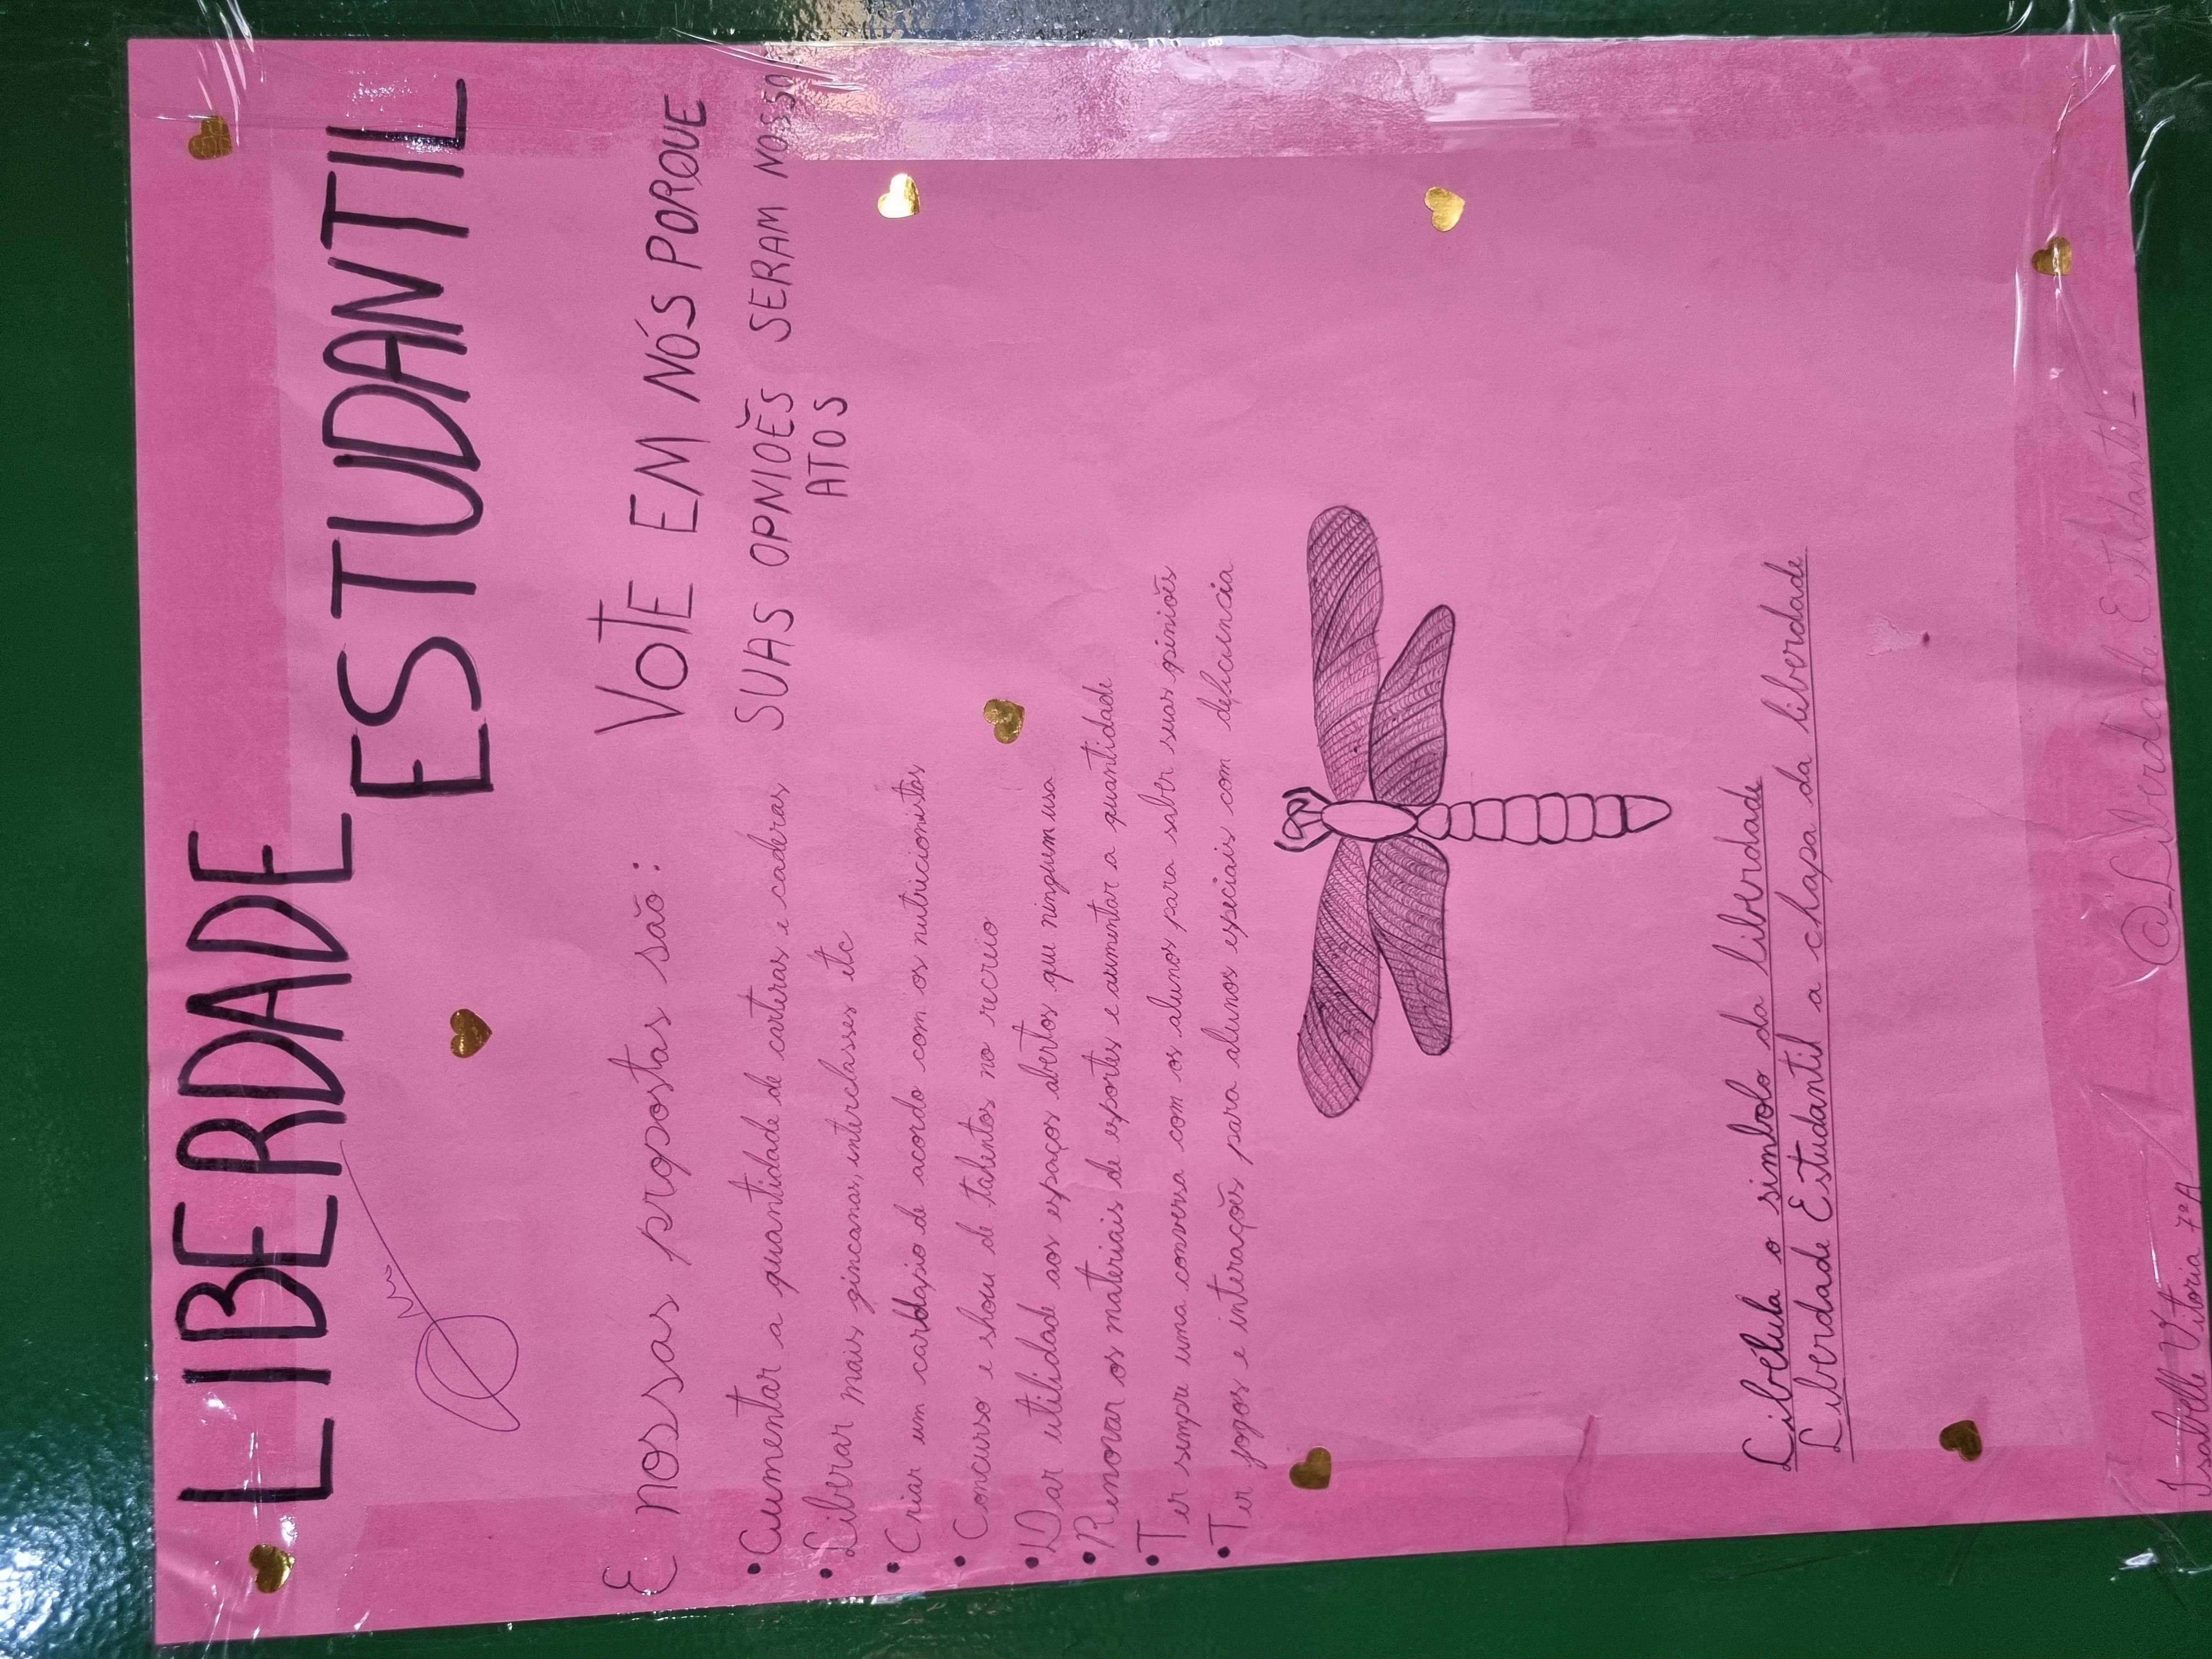 LIBERDADE
ESTUDANTIL
E nossas propostas são:
• Aumentar a quantidade de carteras e caderas
• Liberar mais gincanas, interclasses etc
• Criar um cardapio de acordo com os nutricionistas
• Concurso e show de talentos no recreio
• Dar utilidade aos espaços abertos que ninguem usa
• Renovar os materiais de esportes e aumentar a quantidade
• Ter sempre uma conversa com os alunos para saber suas opiniões
• Ter jogos e interações para alunos especiais com deficiencia
VOTE EM NÓS PORQUE
SUAS OPNIOÊS SERAM NOSSO
ATOS
Libélula o simbolo da liberdade
Liberdade Estudantil a chapa da liberdade
@_Liberdade.Estudantil_
Isabelle Vitoria 7ºA